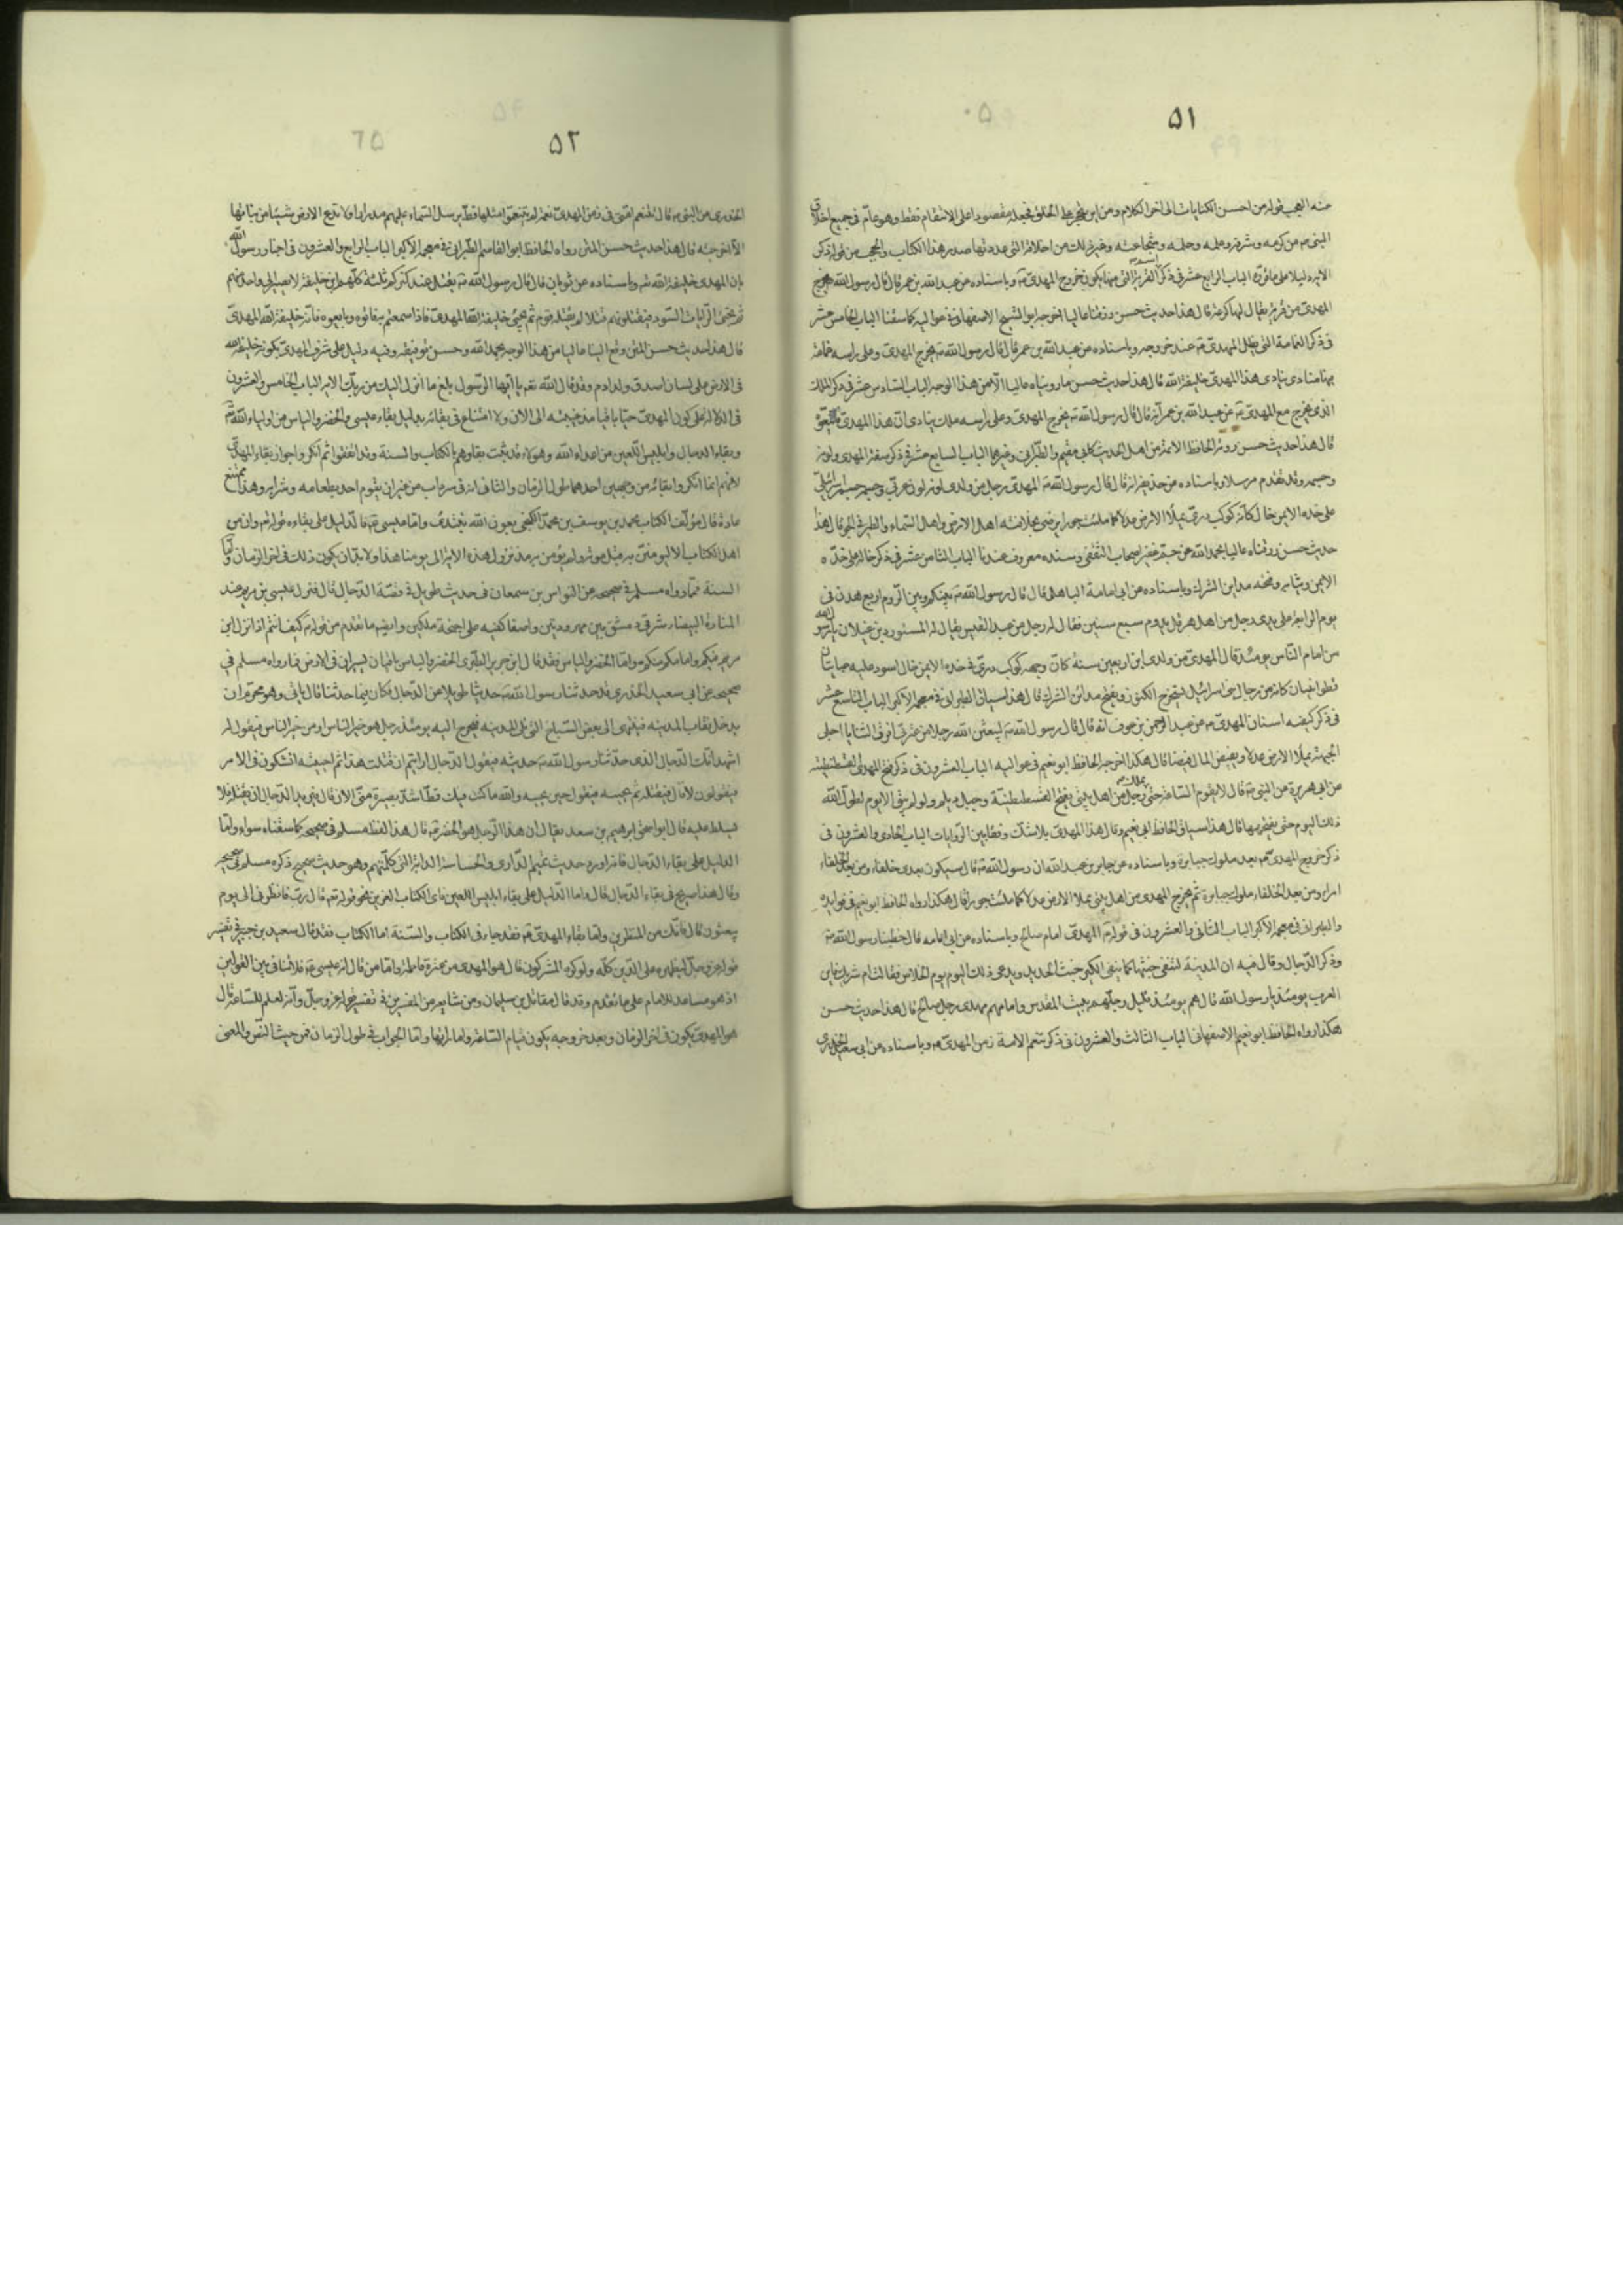 ٥١
منه العجب قوله من احسن الكنايات الى اخر الكلام ومن اين تحجر على الخلق فجعله مقصورا على الانتقام فقط وهو عام فى جميع اخلاق
النبى من كرمه وشرفه وعلمه وحلمه وشجاعته وغير ذلك من اخلاقه التى عددتها صدر هذا الكتاب والعجب من قوله ذكر
الاية دليلا على الباب الرابع عشر فى ذكر اسم القرية التى منها يكون خروج المهدى وباسناده عن عبد الله بن عمر قال قال رسول الله يخرج
المهدى من قرية يقال لها كرعة قال هذا حديث حسن رزقناه عاليا اخرجه ابو الشيخ الاصفهانى فى عواليه كما سقناه الباب الخامس عشر
فى ذكر الغمامة التى تظلل المهدى عند خروجه وباسناده عن عبد الله بن عمر قال قال رسول الله يخرج المهدى وعلى راسه غمامة
فيها مناد ينادى هذا المهدى خليفة الله قال هذا حديث حسن ما رويناه عاليا الا من هذا الوجه الباب السادس عشر فى ذكر الملك
الذى يخرج مع المهدى عن عبد الله بن عمر انه قال قال رسول الله يخرج المهدى وعلى راسه ملك ينادى ان هذا المهدى فاتبعوه
قال هذا حديث حسن روته الحفاظ الائمة من اهل الحديث كابى نعيم والطبرانى وغيرهما الباب السابع عشر فى ذكر صفة المهدى ولونه
وجسمه وقد تقدم مرسلا وباسناده عن حذيفة انه قال قال رسول الله المهدى رجل من ولدى لونه لون عربى وجسمه جسم اسرائيلى
على خده الايمن خال كانه كوكب درى يملأ الارض عدلا كما ملئت جورا يرضى بخلافته اهل الارض واهل السماء والطير فى الجو قال هذا
حديث حسن رزقناه عاليا بحمد الله عن جم غفير اصحاب الثقفى وسنده معروف عندنا الباب الثامن عشر فى ذكر خاله على خده
الايمن وثيابه وفتحه مداين الشرك وباسناده عن ابى امامة الباهلى قال قال رسول الله بينكم وبين الروم اربع هدن فى
يوم الرابعة على يدى رجل من اهل هرقل يدوم سبع سنين فقال له رجل من عبد القيس يقال له المستورد بن غيلان يا رسول الله
من امام الناس يومئذ قال المهدى من ولدى ابن اربعين سنة كان وجهه كوكب درى فى خده الايمن خال اسود عليه عباءتان
قطوانيتان كانه من رجال بنى اسرائيل يستخرج الكنوز ويفتح مداين الشرك قال هذا سياق الطبرانى فى معجمه الاكبر الباب التاسع عشر
فى ذكر كيفية اسنان المهدى عن عبد الرحمن بن عوف انه قال قال رسول الله ليبعثن الله رجلا من عترتى افرق الثنايا اجلى
الجبهة يملأ الارض عدلا ويفيض المال فيضا قال هكذا اخرجه الحافظ ابو نعيم فى عواليه الباب العشرون فى ذكر فتح المهدى القسطنطينية
عن ابى هريرة عن النبى قال لا يقوم الساعة حتى يملك رجل من اهل بيتى يفتح القسطنطنية وجبل ديلم ولو لم يبق الا يوم لطول الله
ذلك اليوم حتى يفتحها قال هذا سياق الحافظ ابى نعيم وقال هذا المهدى بلا شك وفقا بين الروايات الباب الحادى والعشرون فى
ذكر خروج المهدى بعد ملوك جبابرة وباسناده عن جابر بن عبد الله ان رسول الله قال سيكون بعدى خلفاء ومن بعد الخلفاء
امراء ومن بعد الخلفاء ملوك جبابرة ثم يخرج المهدى من اهل بيتى يملا الارض عدلا كما ملئت جورا قال هكذا رواه الحافظ ابو نعيم فى فوايده
والطبرانى فى معجمه الاكبر الباب الثانى والعشرون فى قوله المهدى امام صالح وباسناده عن ابى امامه قال خطبنا رسول الله
وذكر الدجال وقال فيه ان المدينة لتنفى خبثها كما ينفى الكير خبث الحديد ويدعى ذلك اليوم يوم الخلاص فقالت ام شريك فاين
العرب يومئذ يا رسول الله قال هم يومئذ قليل وجلهم ببيت المقدس وامامهم مهدى رجل صالح قال هذا حديث حسن
هكذا رواه الحافظ ابو نعيم الاصفهانى الباب الثالث والعشرون فى ذكر تنعم الامة زمن المهدى وباسناده عن ابى سعيد الخدرى
٥٢
الخدرى عن النبى قال تتنعم امتى فى زمن المهدى نعمة لم يتنعموا مثلها قط يرسل السماء عليهم مدرارا ولا تدع الارض شيئا من نباتها
الا اخرجته قال هذا حديث حسن المتن رواه الحافظ ابو القاسم الطبرانى فى معجمه الاكبر الباب الرابع والعشرون فى اخبار رسول الله
بان المهدى خليفة الله وباسناده عن ثوبان قال قال رسول الله يقتل عند كنزكم ثلثة كلهم ابن خليفة لا يصير الى واحد منهم
ثم تجىء الرايات السود فيقتلونهم قتلا لم يقتله قوم ثم يجىء خليفة الله المهدى فاذا سمعتم به فاتوه وبايعوه فانه خليفة الله المهدى
قال هذا حديث حسن المتن وقع الينا عاليا من هذا الوجه بحمد الله وحسن توفيقه وفيه دليل على شرف المهدى بكونه خليفة الله
فى الارض على لسان اصدق ولد ادم وقد قال الله تعه يا ايها الرسول بلغ ما انزل اليك من ربك الاية الباب الخامس والعشرون
فى الدلالة على كون المهدى حيا باقيا مذ غيبته الى الان ولا امتناع فى بقائه بدليل بقاء عيسى والخضر والياس من اولياء الله
وبقاء الدجال وابليس اللعين من اعداء الله وهؤلاء قد ثبت بقاؤهم بالكتاب والسنة وقد اتفقوا ثم انكروا جواز بقاء المهدى
لانهم انما انكروا بقائه من وجهين احدهما طول الزمان والثانى انه فى سرداب من غير ان يقوم احد بطعامه وشرابه وهذا يمتنع
عادة قال مؤلف الكتاب محمد بن يوسف بن محمد الكنجى بعون الله نبتدى واما عيسى فالدليل على بقاءه قوله تع وان من
اهل الكتاب الا ليومنن به قبل موته ولم يؤمن به مذ نزول هذه الاية الى يومنا هذا ولا بد ان يكون ذلك فى اخر الزمان واما
السنة فما رواه مسلم فى صحيحه عن النواس بن سمعان فى حديث طويل فى قصة الدجال قال فنزل عيسى بن مريم عند
المنارة البيضاء شرقى دمشق بين مهرودتين واضعا كفيه على اجنحة ملكين وايضا ما تقدم من قوله كيف انتم اذا نزل ابن
مريم فيكم وامامكم منكم واما الخضر والياس فقد قال ابن جرير الطبرى الخضر والياس باقيان يسيران فى الارض فما رواه مسلم فى
صحيحه عن ابى سعيد الخدرى قال حدثنا رسول الله حديثا طويلا عن الدجال فكان فيما حدثنا قال ياتى وهو محرم ان
يدخل نقاب المدينه فينتهى الى بعض السباخ التى تلى المدينه فيخرج اليه يومئذ رجل هو خير الناس او من خير الناس فيقول له
اشهد انك الدجال الذى حدثنا رسول الله حديثه فيقول الدجال ارايتم ان قتلت هذا ثم احييته اتشكون فى الامر
فيقولون لا قال فيقتله ثم يحييه فيقول حين يحييه والله ما كنت فيك قط اشد بصيرة منى الان قال فيريد الدجال ان يقتله فلا
يسلط عليه قال ابو اسحق ابرهيم بن سعد يقال ان هذا الرجل هو الخضر قال هذا لفظ مسلم فى صحيحه كما سقناه سواء واما
الدليل على بقاء الدجال فانه اورد حديث تميم الدارى والجساسة الدابة التى كلمتهم وهو حديث صحيح ذكره مسلم فى صحيحه
وقال هذا صريح فى بقاء الدجال قال واما الدليل على بقاء ابليس اللعين فاى الكتاب العزيز نحو قوله تع قال رب فانظرنى الى يوم
يبعثون قال فانك من المنظرين واما بقاء المهدى فقد جاء فى الكتاب والسنة اما الكتاب فقد قال سعيد بن جبير فى تفسير
قوله عز وجل ليظهره على الدين كله ولو كره المشركون قال هو المهدى من عترة فاطمة واما من قال انه عيسى فلا تنافى بين القولين
اذ هو مساعد للامام على ما تقدم وقد قال مقاتل بن سليمان ومن شايعه من المفسرين فى تفسير قوله عز وجل وانه لعلم للساعة قال
هو المهدى يكون فى اخر الزمان وبعد خروجه يكون قيام الساعة واماراتها واما الجواب فى طول الزمان فمن حيث النص والمعنى